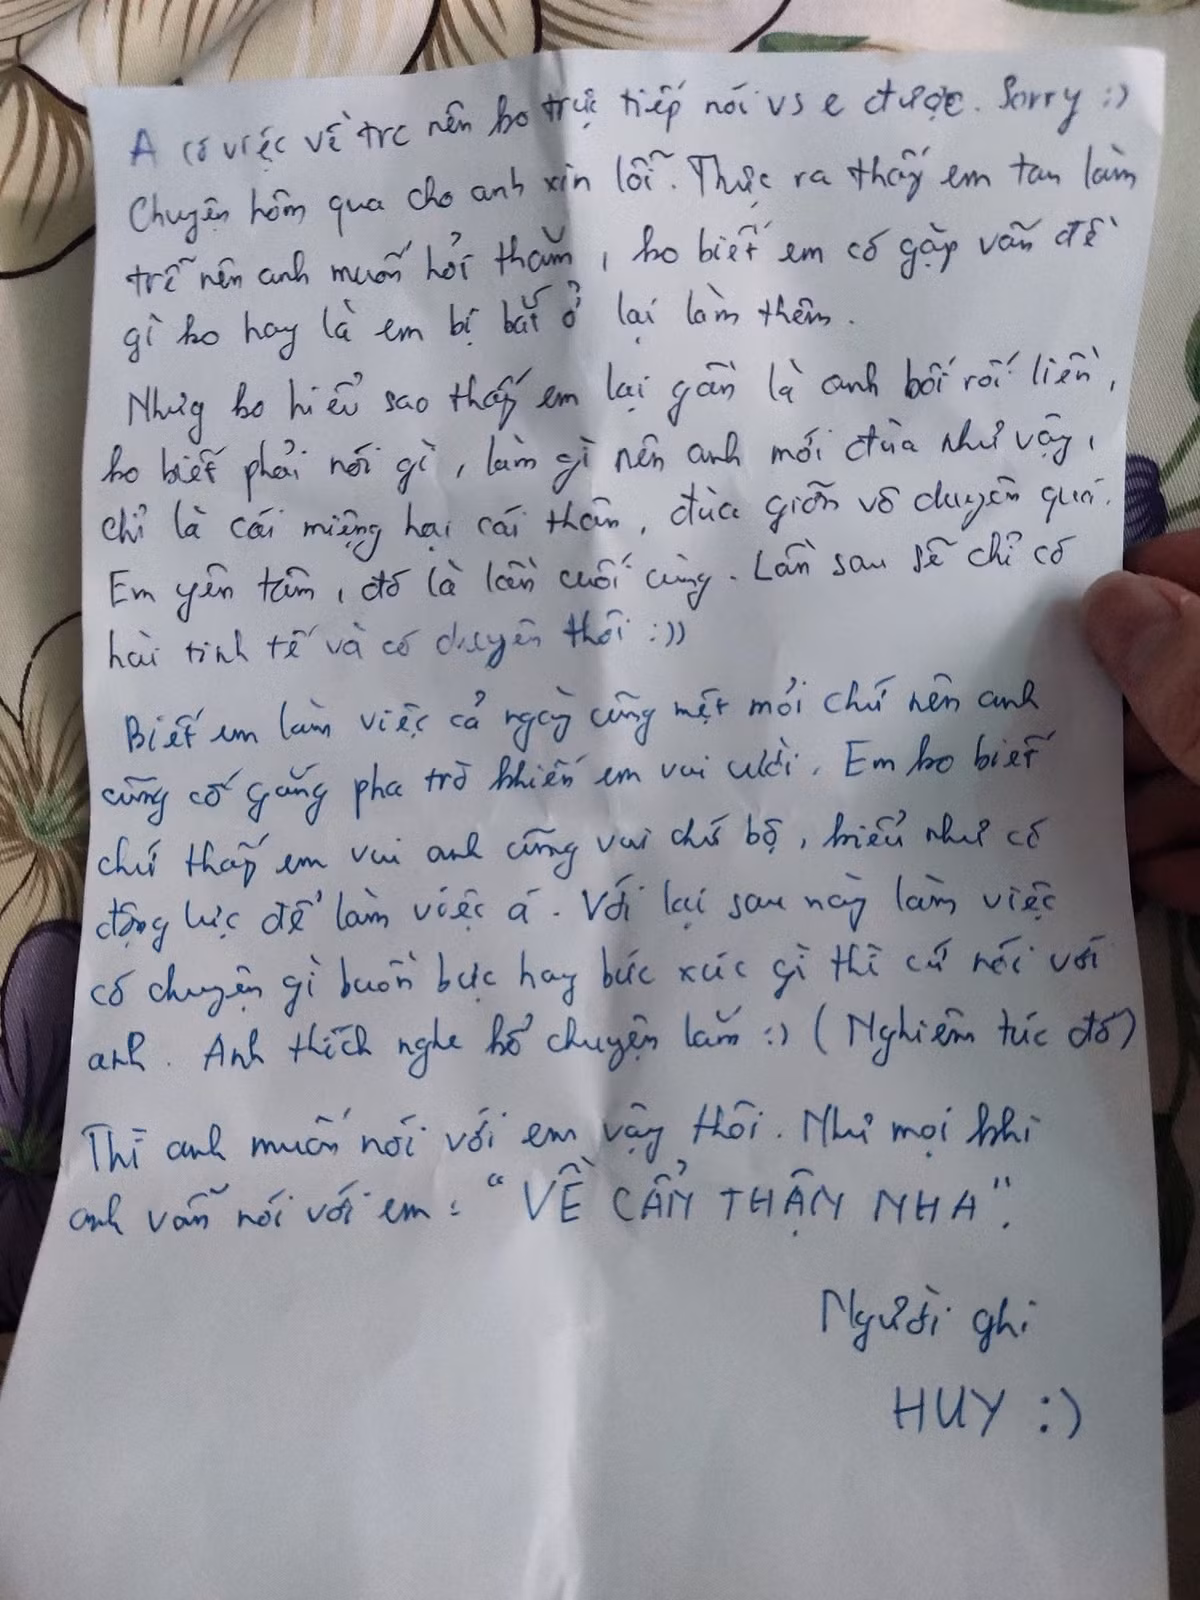 A có việc về trc nên ko trực tiếp nói vs e được. Sorry :)
Chuyện hôm qua cho anh xin lỗi. Thực ra thấy em tan làm
trễ nên anh muốn hỏi thăm, ko biết em có gặp vấn đề
gì ko hay là em bị bắt ở lại làm thêm.
Nhưg ko hiểu sao thấy em lại gần là anh bối rối liền,
ko biết phải nói gì, làm gì nên anh mới đùa như vậy,
chỉ là cái miệng hại cái thân, đùa giỡn vô duyên quá.
Em yên tâm, đó là lần cuối cùng. Lần sau sẽ chỉ có
hài tinh tế và có duyên thôi :))
Biết em làm việc cả ngày cũng mệt mỏi chứ nên anh
cũng cố gắng pha trò khiến em vui cười. Em ko biết
chứ thấy em vui anh cũng vui chứ bộ, kiểu như có
động lực để làm việc á. Với lại sau này làm việc
có chuyện gì buồn bực hay bức xúc gì thì cứ nói với
anh. Anh thích nghe kể chuyện lắm :) (Nghiêm túc đó)
Thì anh muốn nói với em vậy thôi. Như mọi khi
anh vẫn nói với em : "VỀ CẨN THẬN NHA".
Người ghi
HUY :)